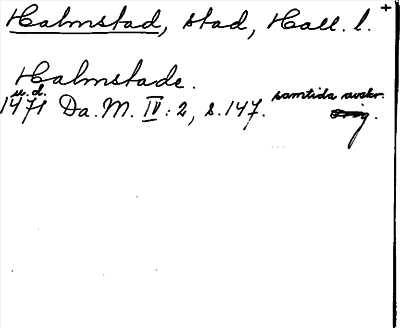 Halmstad, stad, Hall. l. +
Halmstade.
u. d. samtida avskr.
1471 Da. M. IV: 2, s. 147. orig.